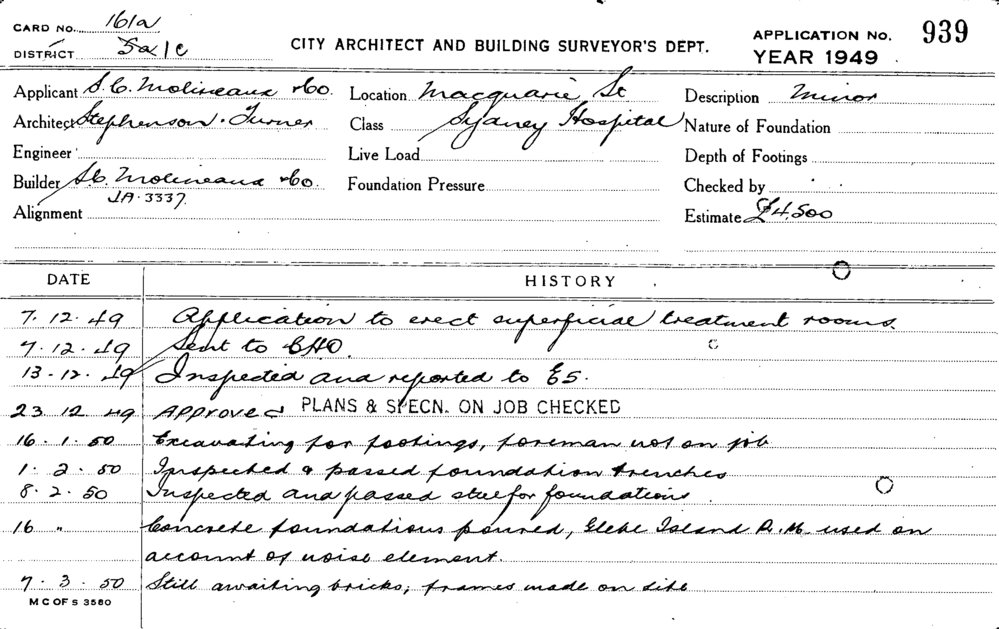 CARD NO. 161a
DISTRICT 5a/c
CITY ARCHITECT AND BUILDING SURVEYOR'S DEPT.
APPLICATION NO. 939
YEAR 1949
Applicant S.C. Molineaux & Co. Location Macquarie St Description Minor
Architect Stephenson. Turner Class Sydney Hospital Nature of Foundation
Engineer Live Load Depth of Footings
Builder S.C. Molineaux & Co. Foundation Pressure Checked by
JA. 3337.
Alignment Estimate £4,500
DATE HISTORY
7. 12. 49 Application to erect superficial treatment rooms.
7. 12. 49 Sent to CHO.
13. 12. 49 Inspected and reported to ES.
23. 12. 49 Approved PLANS & SPECN. ON JOB CHECKED
16. 1. 50 Excavating for footings, foreman not on job
1. 2. 50 Inspected & passed foundation trenches
8. 2. 50 Inspected and passed steel for foundations.
16 " Concrete foundations poured, Glebe Island R.M. used on
account of noise element.
7. 3. 50 Still awaiting bricks; frames made on site
M C OF S 3580